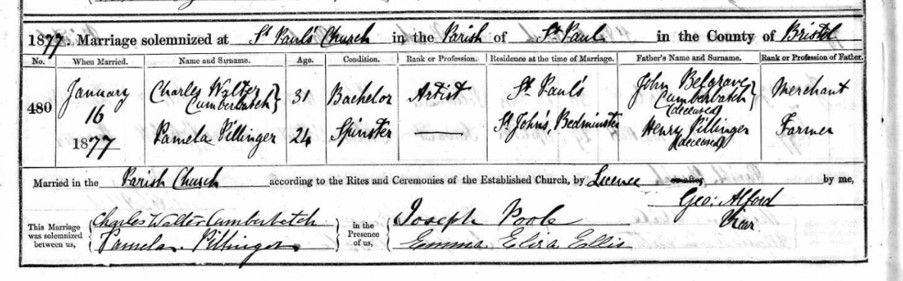 1877. Marriage solemnized at St Paul's Church in the Parish of St Paul in the County of Bristol
No. When Married. Name and Surname. Age. Condition. Rank or Profession. Residence at the time of Marriage. Father's Name and Surname. Rank or Profession of Father.
480 January 16 1877 Charles Walter Cumberbatch 31 Bachelor Artist St Paul's John Belgrave Cumberbatch (deceased) Merchant
Pamela Pillinger 24 Spinster — St John's, Bedminster Henry Pillinger (deceased) Farmer
Married in the Parish Church according to the Rites and Ceremonies of the Established Church, by Licence or after by me,
Geo: Alford
Vicar
This Marriage was solemnized between us, Charles Walter Cumberbatch in the Presence of us, Joseph Poole
Pamela Pillinger Emma Eliza Ellis